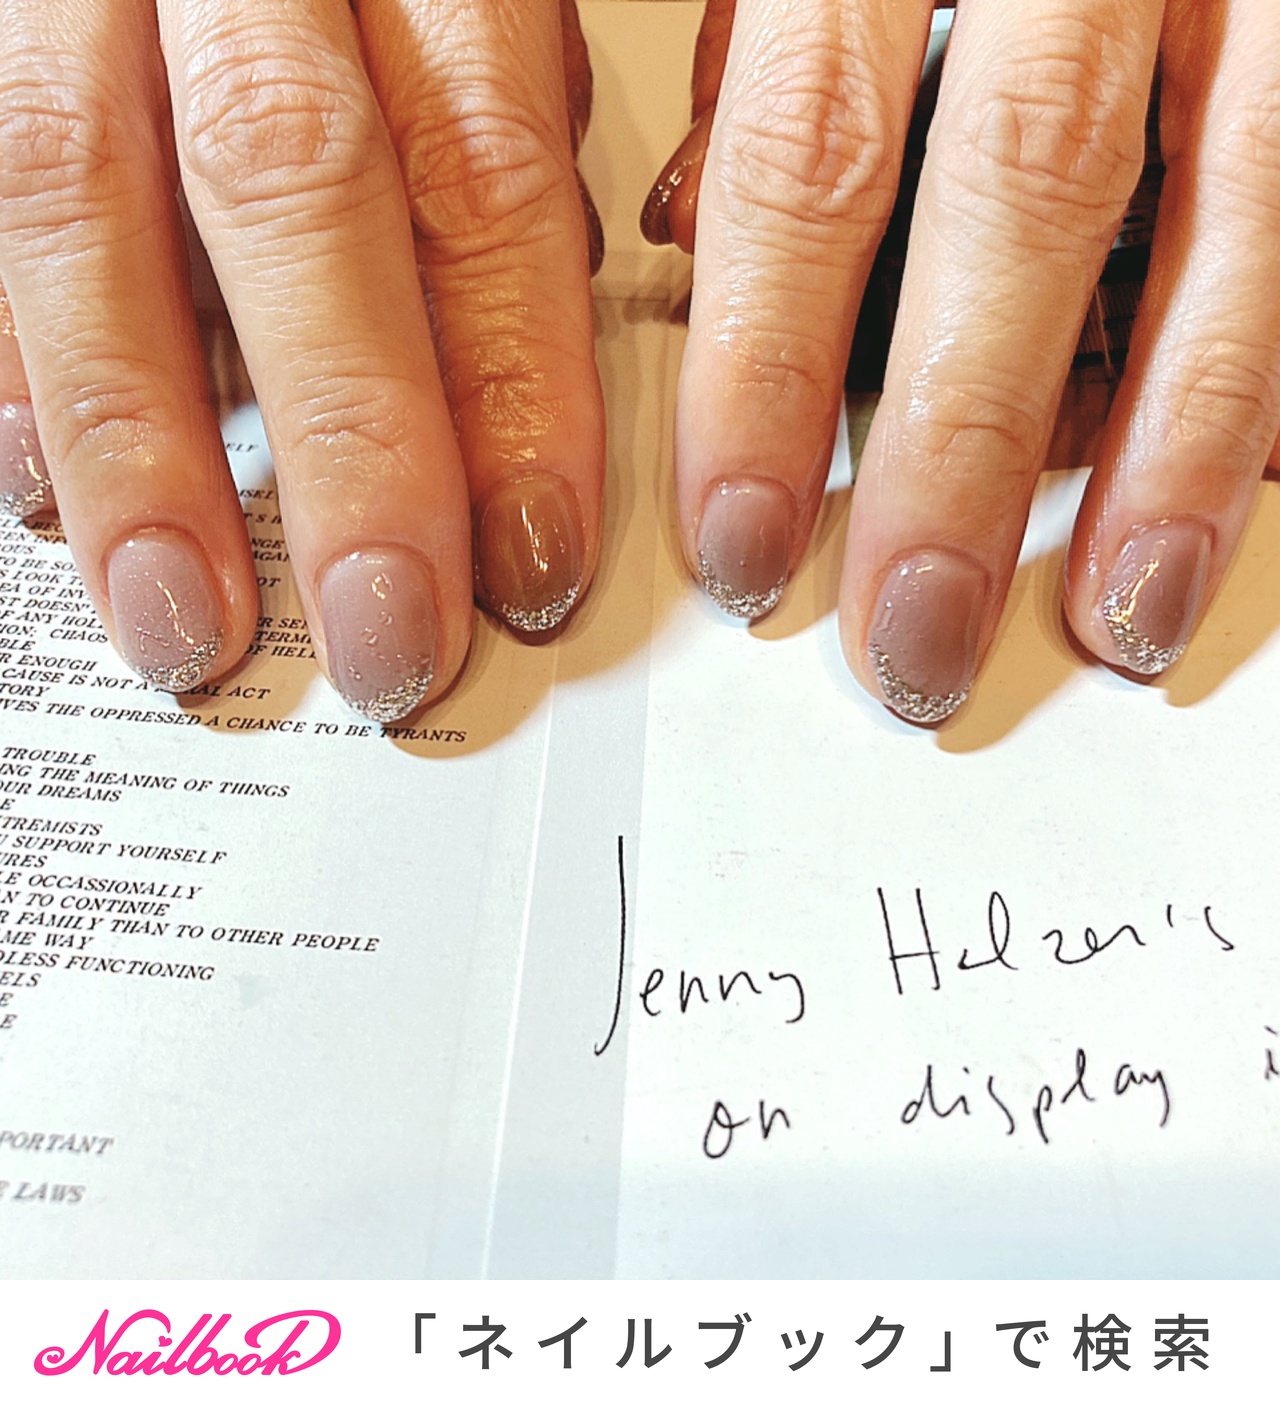 ELF
TO BE SO
S LOOK T
EA OF INV
ST DOESN'T
OF ANY HOL
ION: CHAOS
BLE
R ENOUGH
CAUSE IS NOT A ACT
TORY
IVES THE OPPRESSED A CHANCE TO BE TYRANTS
TROUBLE
ING THE MEANING OF THINGS
OUR DREAMS
E
TREMISTS
U SUPPORT YOURSELF
URES
LE OCCASSIONALLY
AN TO CONTINUE
R FAMILY THAN TO OTHER PEOPLE
AME WAY
DLESS FUNCTIONING
ELS
E
E
PORTANT
E LAWS
Jenny Holzer's
on display i
Nailbook 「ネイルブック」で検索